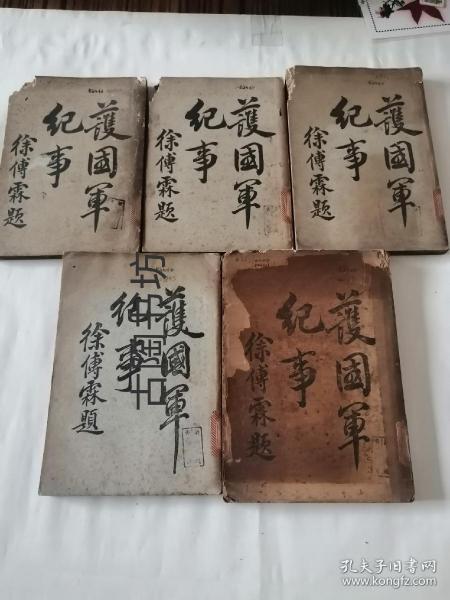 護國軍
紀事
徐傅霖題
護國軍
紀事
徐傅霖題
護國軍
紀事
徐傅霖題
護國軍
紀事
徐傅霖題
護國軍
紀事
徐傅霖題
孔夫子旧书网
www.kongfz.com